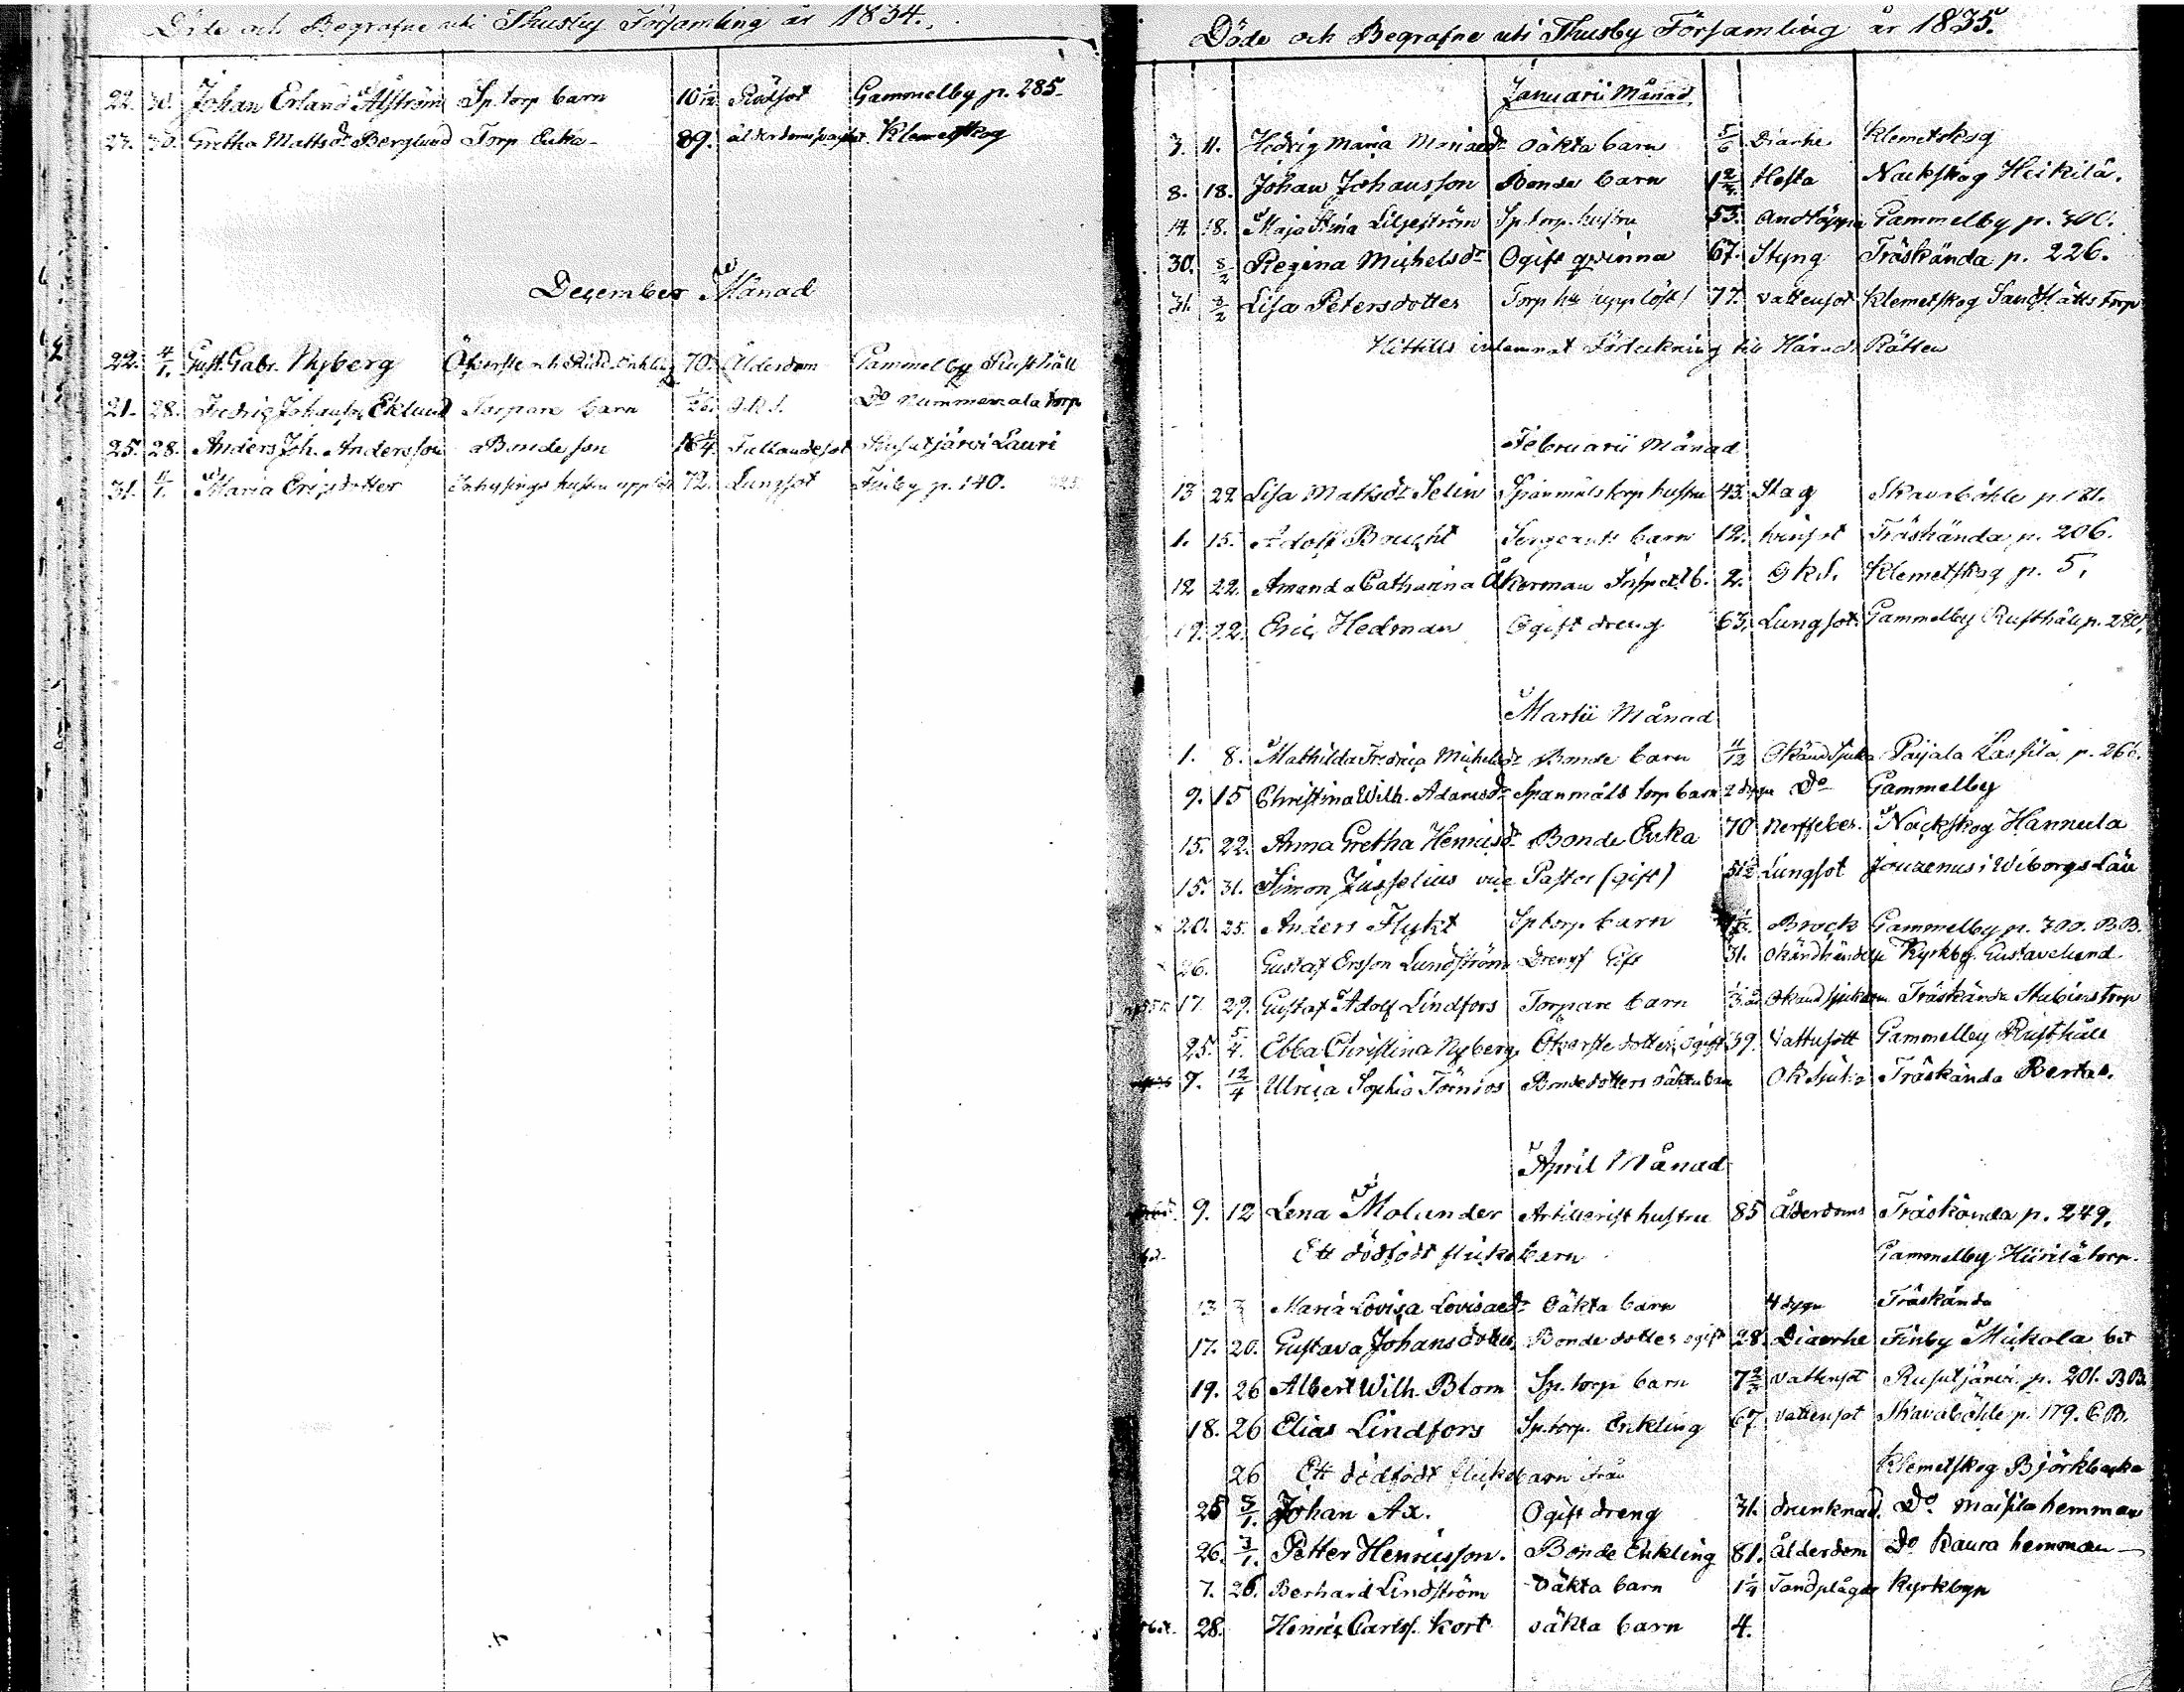 Döde och Begrafne uti Thusby Församling år 1834.
22. 30. Johan Erland Alström Sp. torp barn 10 1/12 Rödsot Gammelby p. 285.
27. 30. Gretha Matts dr Berglund Torp Enka 89. Klemetskog
December Månad
22. 4/1. Gust. Gabr. Nyberg 70. Ålderdom Gammelby Rusthåll
21. 28. Fredrig Johansson Eklund Torpare barn O.K.S. Do Nummenala torp
25. 28. Anders Joh. Andersson Bondeson Fallandesot Rusutjärvi Lauri
31. Maria Ericsdotter Inhysings hustru 72. Lungsot Finby p. 140.
Döde och Begrafne uti Thusby Församling år 1835.
Januarii Månad.
3. 11. Hedvig Maria Mariae dr Oäkta barn 5/6 Diarhe Klemetskog
8. 18. Johan Johansson Bonde barn Hosta Nackskog Heikilä.
14. 18. Maja Stina Liljeström Sp. torp. hustru 53. Andtäppa Gammelby p. 300.
30. 8/2 Regina Michels dr Ogift qvinna 67. Styng Träskända p. 226.
31. 8/2 Lisa Petersdotter Torp hu (upplöst) 77. Vattensot Klemetskog Torp
Hittills inlemnat Förteckning till Härads Rätten
Februarii Månad
13 22 Lisa Matts dr Selin Spanmåls torp hustru 43. Slag Skavaböhle p. 181.
1. 15. Adolf Sergeants barn 12. Träskända p. 206.
12 22. Amanda Catharina Åkerman Inspect. b. 2. O k S. Klemetskog p. 5.
19. 22. Eric Hedman Ogift dreng 63. Lungsot. Gammelby Rusthåll p. 280.
Martii Månad
1. 8. Mathilda Fredrica Michels dr Bonde barn 11/12 Okänd sjuka Paijala Lassila p. 266.
9. 15 Christina Wilh. Adams dr Spanmåls torp barn 2 dygn Do Gammelby
15. 22. Anna Gretha Henrics dr Bonde Enka 70 Nerffeber. Nackskog Hannula
15. 31. Simon Jusselius vice Pastor (gift) 51 1/2 Lungsot i Wiborgs Län
20. 25. Anders Flykt Sp torp barn Brock Gammelby p. 300. B.B.
26. Gustaf Ersson Lundström Dreng Gift 31. Okänd händelse Kyrkby Gustavelund.
17. 29. Gustaf Adolf Lindfors Torpare barn Okänd sjukdom Träskända Stubins torp
25. 5/4. Ebba Christina Nyberg Öfverste dotter, ogift 39. Vattusott Gammelby Rusthåll
7. 12/4 Ulrica Sophia Törnros Bondedotters oäkta barn Ok sjuka Träskända Bertas.
April Månad
9. 12 Lena Molander Artillerist hustru 85 Ålderdoms Träskända p. 249.
Ett dödfödt flickobarn Gammelby Hiirilä torp.
13 Maria Lovisa Lovisae dr Oäkta barn 4 dygn Träskända
17. 20. Gustava Johansdotter Bonde dotter ogift 28. Diaerhe Finby Mickola
19. 26 Albert Wilh. Blom Sp. torp barn Vattensot Rusutjärvi p. 201. B.B.
18. 26 Elias Lindfors Sp. torp. Enkling 67 Vattensot Skavaböhle p. 179. E.B.
26 Ett dödfödt flickobarn ifrån Klemetskog Björkbacka
25 3/1. Johan Ax. Ogift dreng 31. drunknad. Do. hemman
26. 3/1. Petter Henricsson. Bonde Enkling 81. ålderdom Do Kaura hemman
7. 26. Berhard Lindström Oäkta barn 1 1/4 Tandplågor Kyrkbyn
28. Henric Carlss. Kort oäkta barn 4.